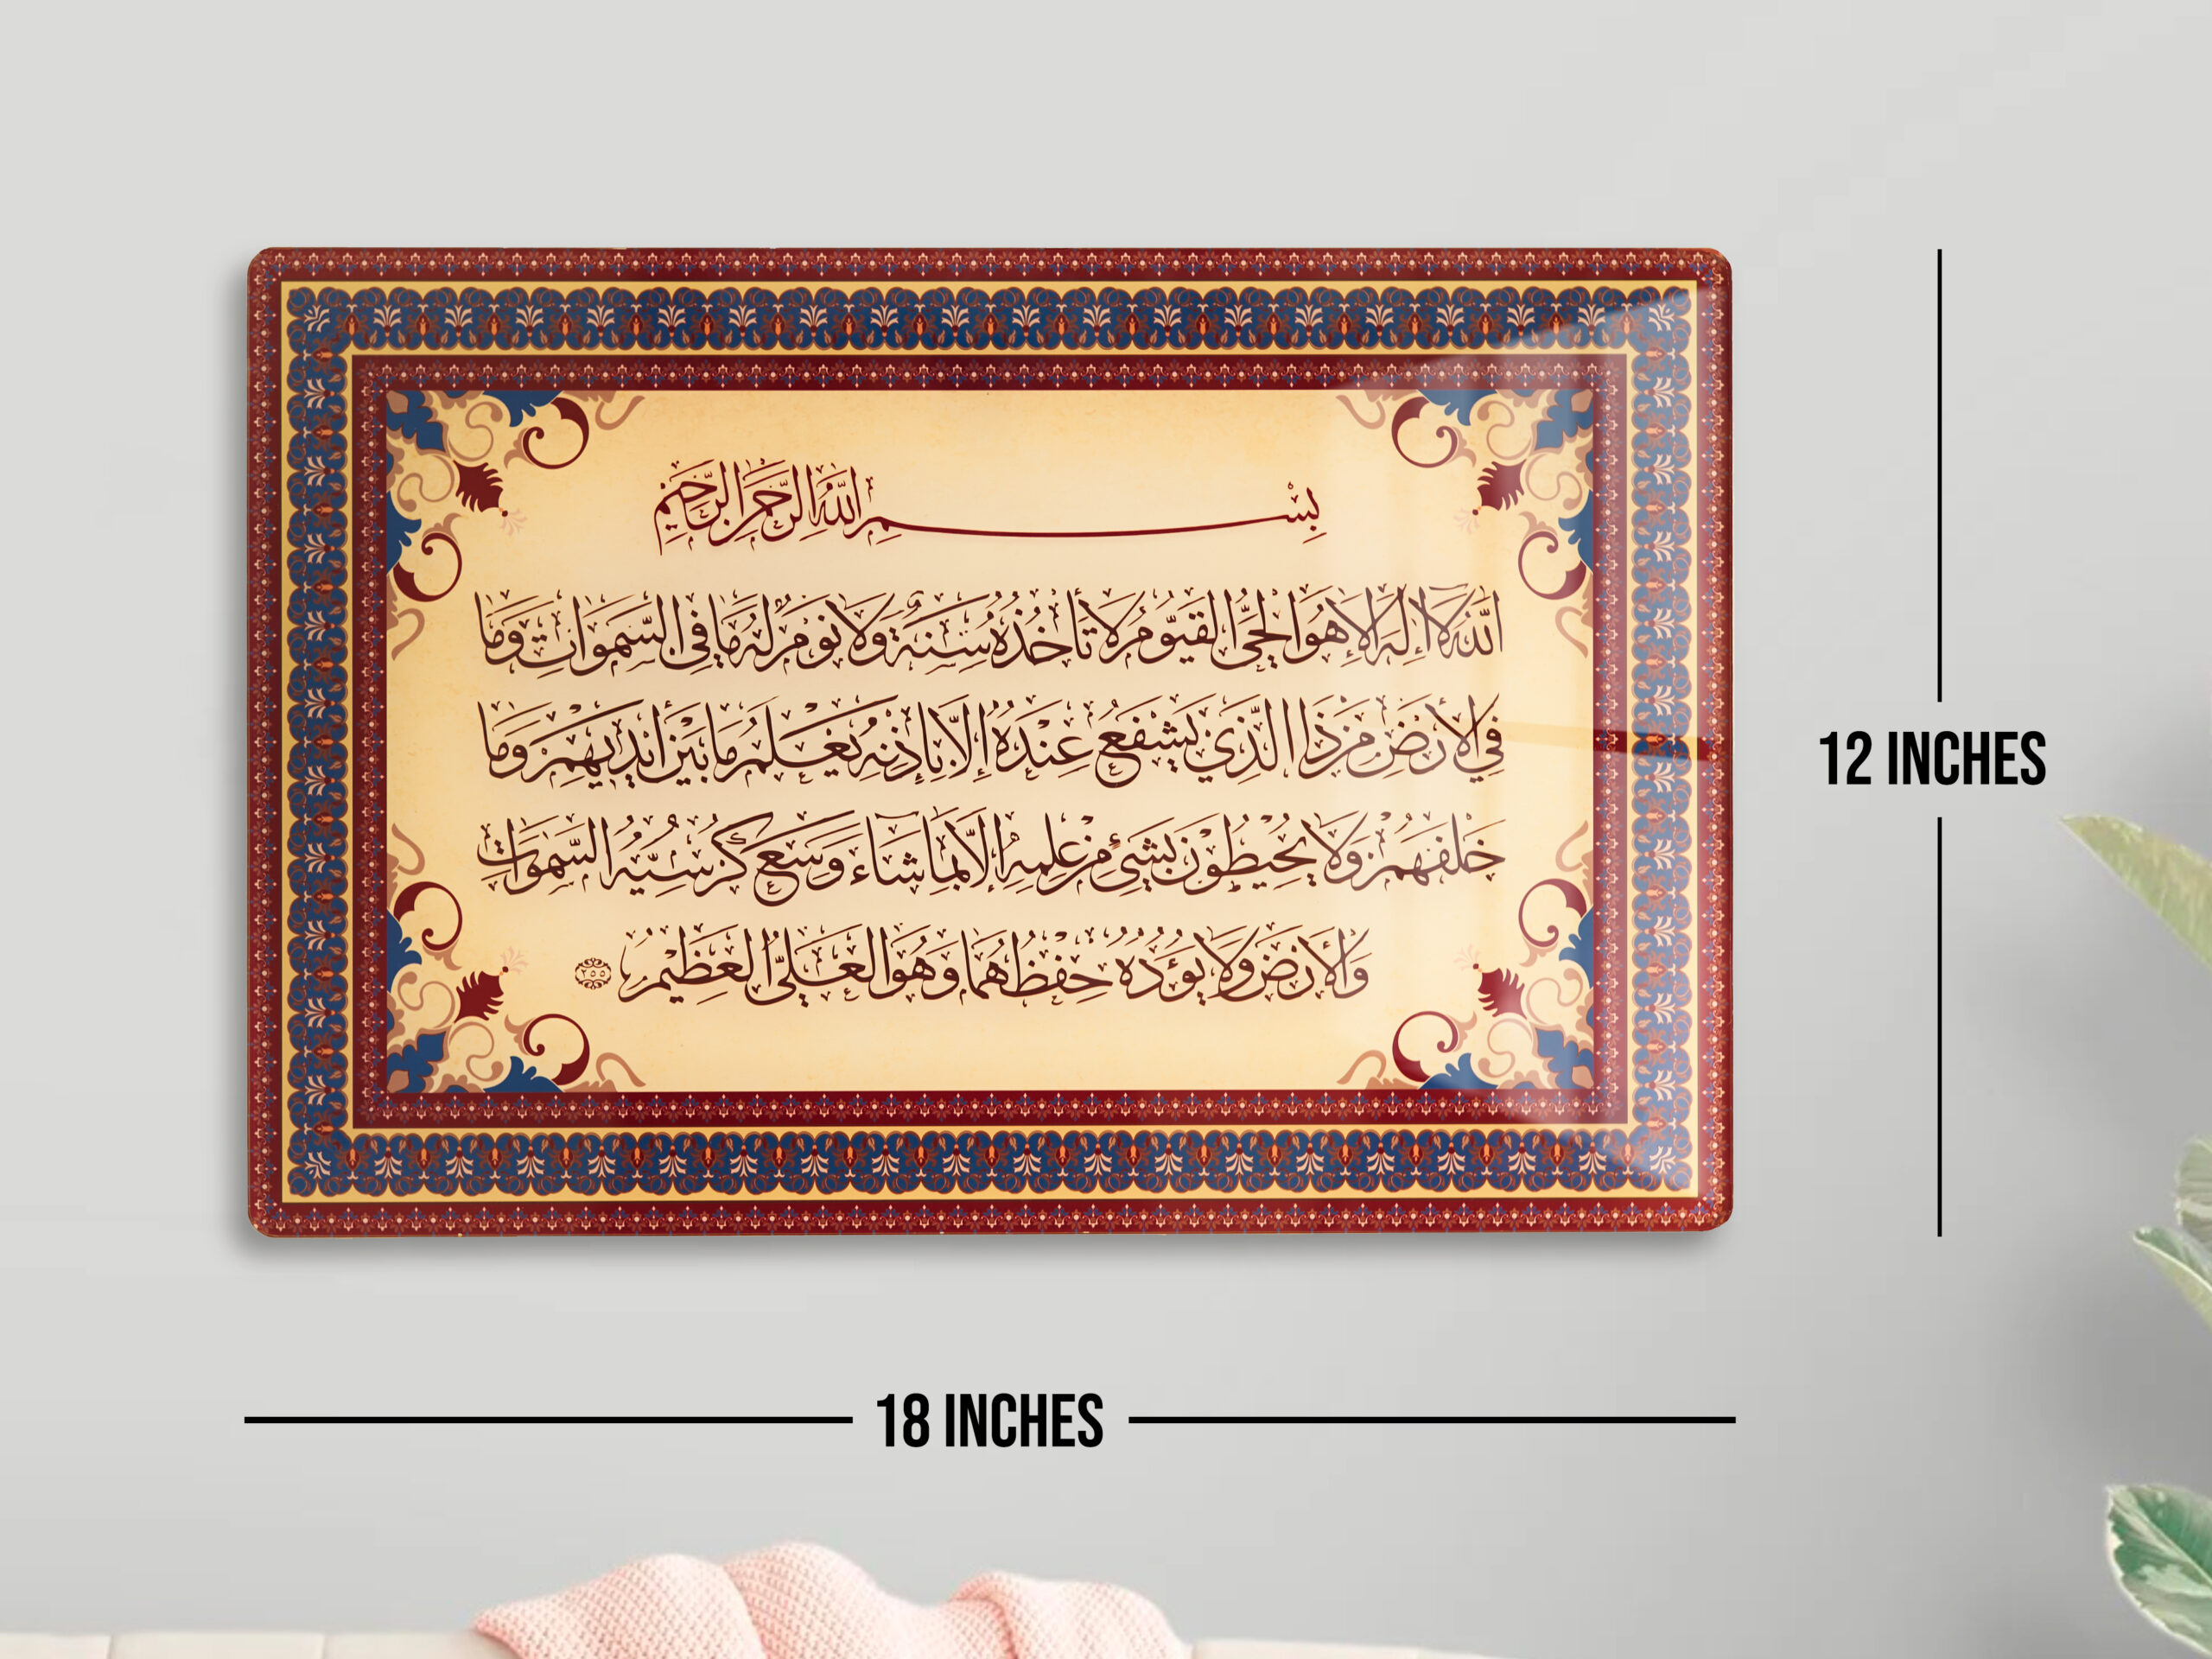 بِسْمِ اللهِ الرَّحْمٰنِ الرَّحِيْمِ
اَللهُ لَا اِلٰهَ اِلَّا هُوَ الْحَيُّ الْقَيُّوْمُ لَا تَأْخُذُهُ سِنَةٌ وَلَا نَوْمٌ لَهُ مَا فِي السَّمٰوَاتِ وَمَا
فِي الْاَرْضِ مَنْ ذَا الَّذِيْ يَشْفَعُ عِنْدَهُ اِلَّا بِاِذْنِهِ يَعْلَمُ مَا بَيْنَ اَيْدِيْهِمْ وَمَا
خَلْفَهُمْ وَلَا يُحِيْطُوْنَ بِشَيْءٍ مِنْ عِلْمِهِ اِلَّا بِمَا شَاءَ وَسِعَ كُرْسِيُّهُ السَّمٰوَاتِ
وَالْاَرْضَ وَلَا يَؤُدُهُ حِفْظُهُمَا وَهُوَ الْعَلِيُّ الْعَظِيْمُ ٢٥٥
12 INCHES
18 INCHES